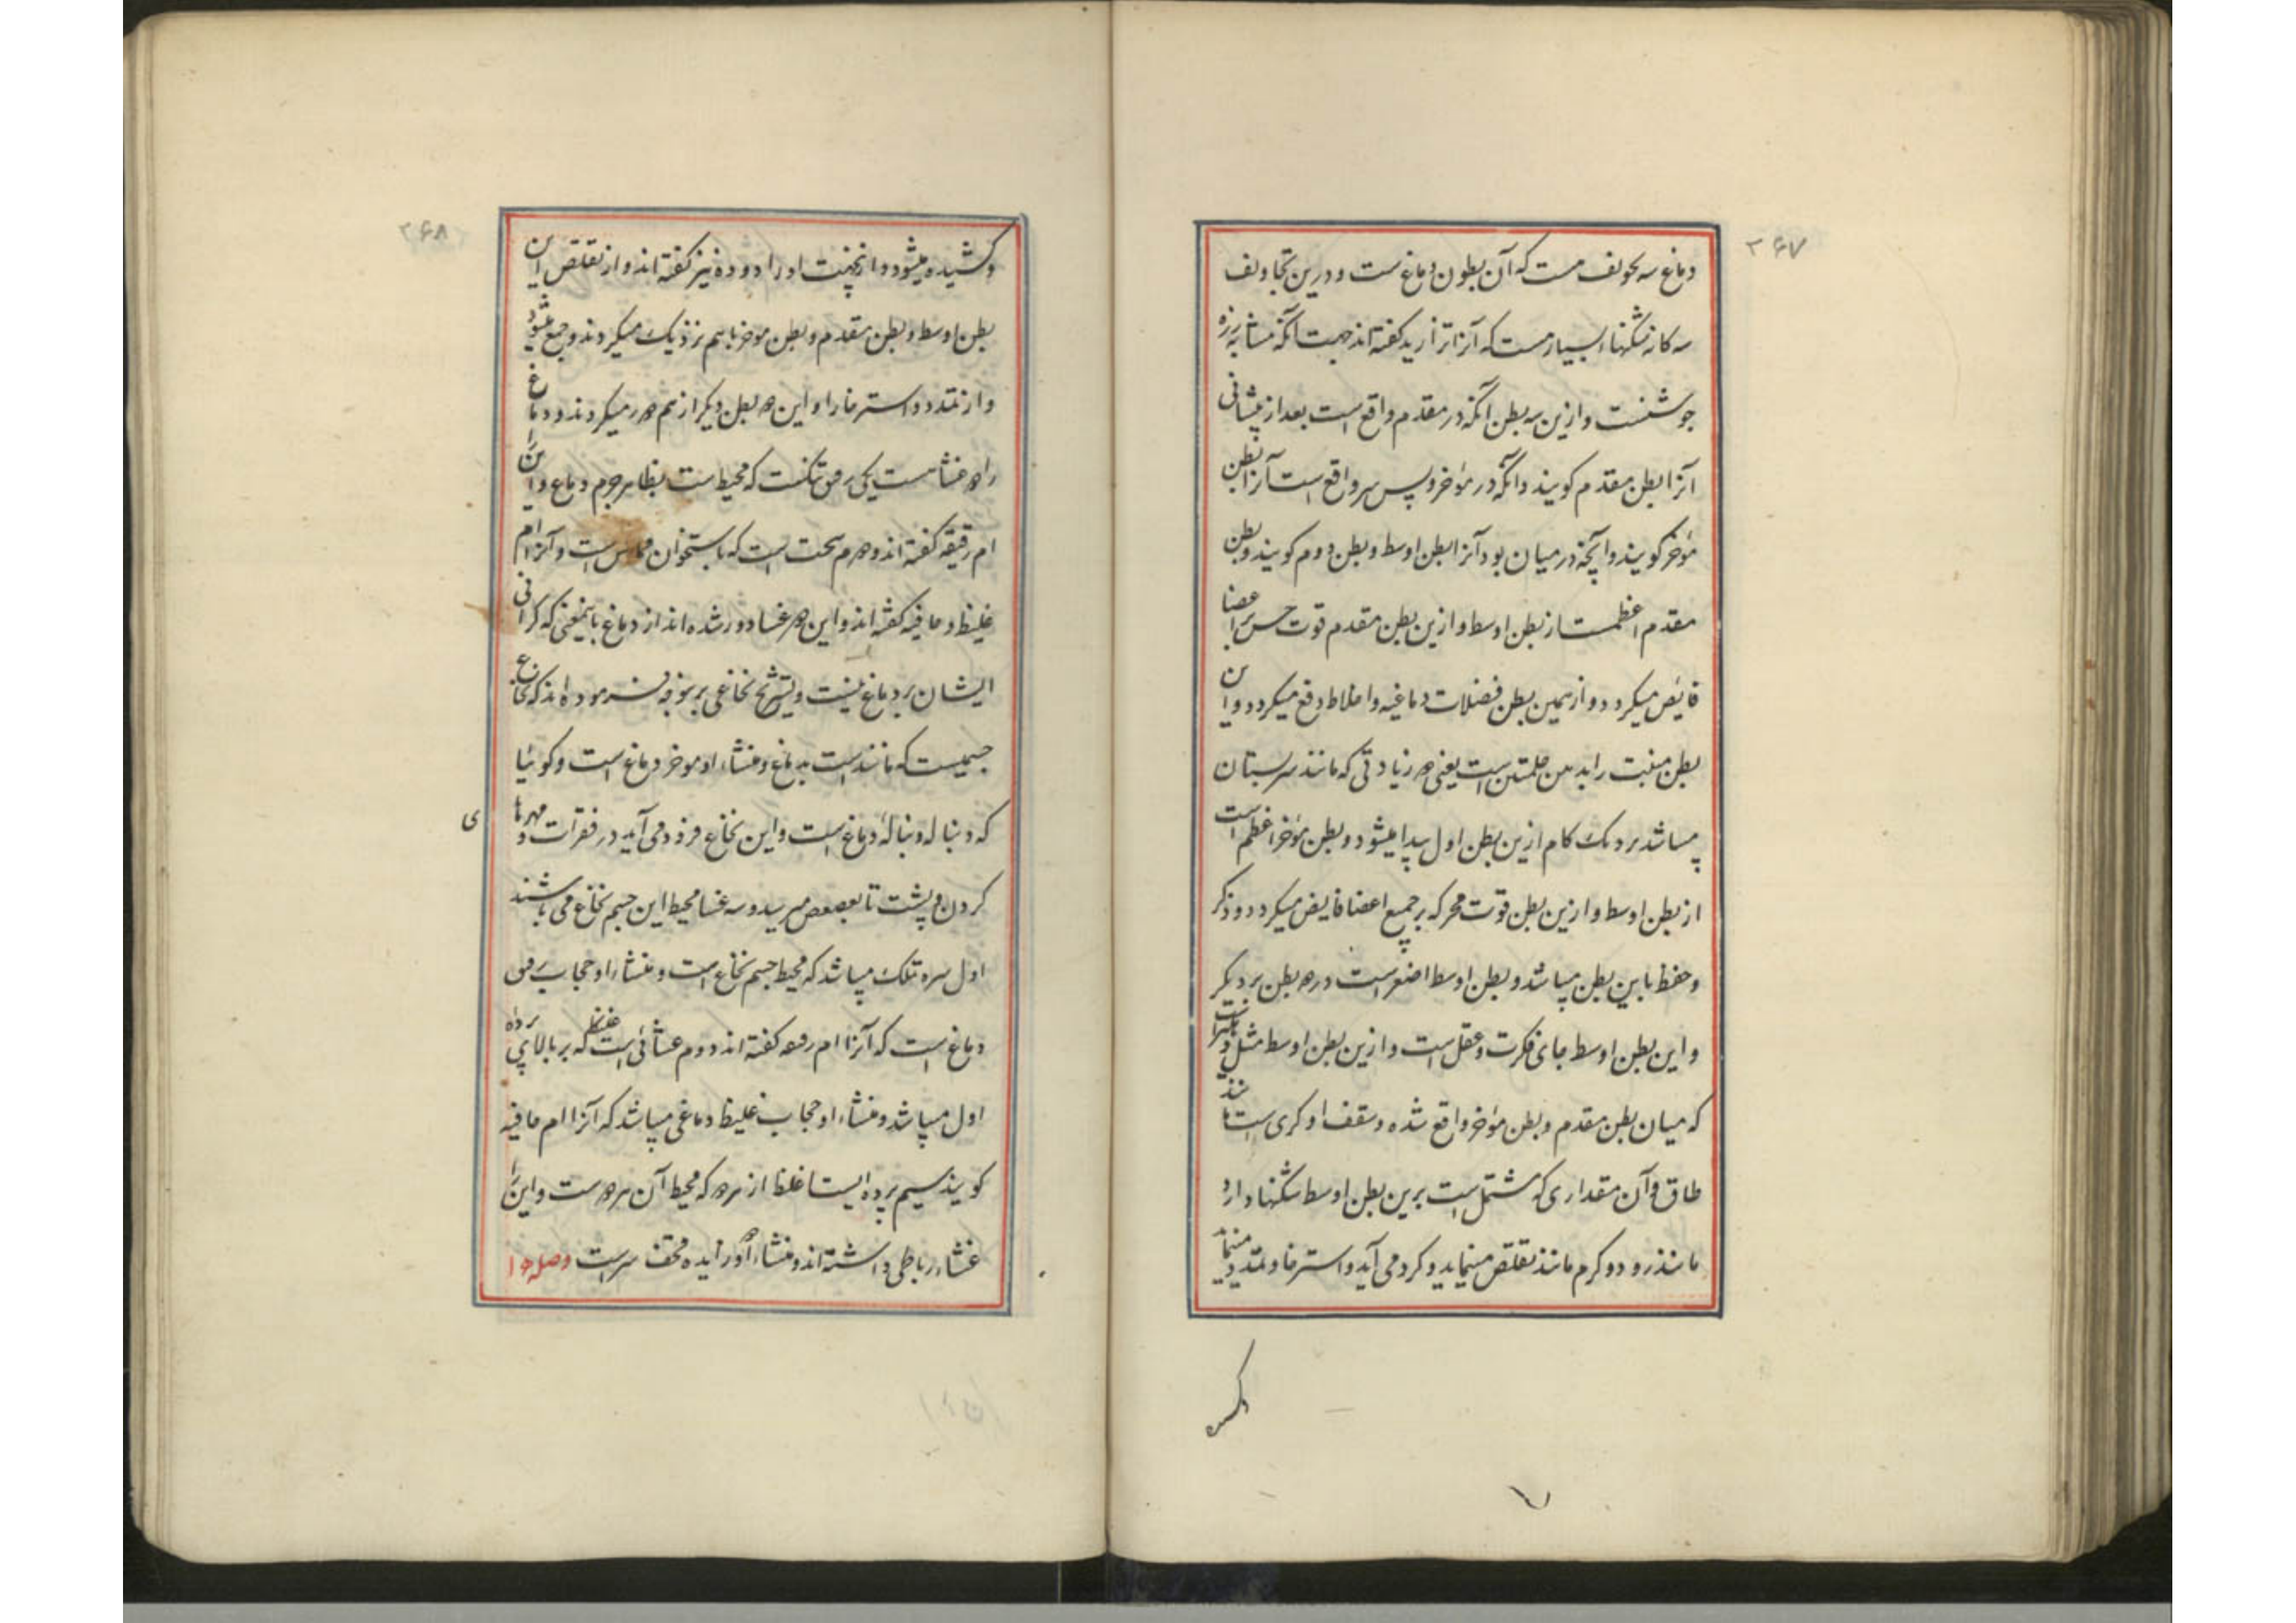 ۲۶۷
دماغ سه تجویف است که آن بطون دماغ ست و درین تجاویف
سه کانه شکنهاء بسیارست که آنرا تزارید کفته اند جهت آنکه مشابه زره
جوشنست و ازین سه بطن آنکه در مقدم واقع است بعد از پیشانی
آنرا بطن مقدم کویند و آنکه در موخر و پس سر واقع است آنرا بطن
موخر کویند و آنچه در میان بود آنرا بطن اوسط و بطن دوم کویند و بطن
مقدم اعظمست از بطن اوسط و ازین بطن مقدم قوت حس بر اعضا
فایض میکردد و از همین بطن فضلات دماغیه و اخلاط دفع میکردد و این
بطن منبت زایدتین حلمتین است یعنی دو زیادتی که مانند سر پستان
میباشد نزدیک کام ازین بطن اول پیدا میشود و بطن موخر اعظم است
از بطن اوسط و ازین بطن قوت محرکه بر جمیع اعضا فایض میکردد و ذکر
و حفظ باین بطن میباشد و بطن اوسط اصغر است از دو بطن دیکر
و این بطن اوسط جای فکرت و عقل است و ازین بطن اوسط مثل
که میان بطن مقدم و بطن موخر واقع شده و سقف او کری است مانند
طاق و آن مقداری که مشتمل است برین بطن اوسط شکنها دارد
مانند رو دو کرم مانند تقلص مینماید و کرد می آید و استرخا و تمدد مینماید
۲۶۸
و کشیده میشود و ازنجهت او را دوده نیز کفته اند و از تقلص این
بطن اوسط و بطن مقدم و بطن موخر باهم نزدیک میکردند و جمع میشود
و از تمدد و استرخا را و این دو بطن دیکر از هم دور میکردند و دماغ
را دو غشاست یکی رقیق تنکست که محیط ست بظاهر جرم دماغ و این را
ام رقیقه کفته اند و دوم سخت است که با ستخوان مماس است و آنرا ام
غلیظ و جافیه کفته اند و این دو غشا دور شده اند از دماغ باینمعنی که کرانی
ایشان بر دماغ نیست و تشریح نخاعی برینوجه فرموده اند که نخاع
جسمیست که مانند است بدماغ و منشاء او موخر دماغ است و کوئیا
که دنباله و دنبالهٔ دماغ است و این نخاع فرود می آید در فقرات و مهرهای
کردن و پشت تا بعصعص میرسد و سه غشا محیط این جسم نخاع می باشند
اول پرده تنک میباشد که محیط جسم نخاع است و منشاء او حجاب رقیق
دماغ است که آنرا ام رقیقه کفته اند دوم غشائی است غلیظ که بر بالای پرده
اول میباشد و منشاء او حجاب غلیظ دماغی میباشد که آنرا ام جافیه
کویند سیم پرده ایست اغلظ از هر دو که محیط آن هر دو ست و این را
غشاء رباطی داشته اند و منشاء او زایده قحف سر است وصله دو